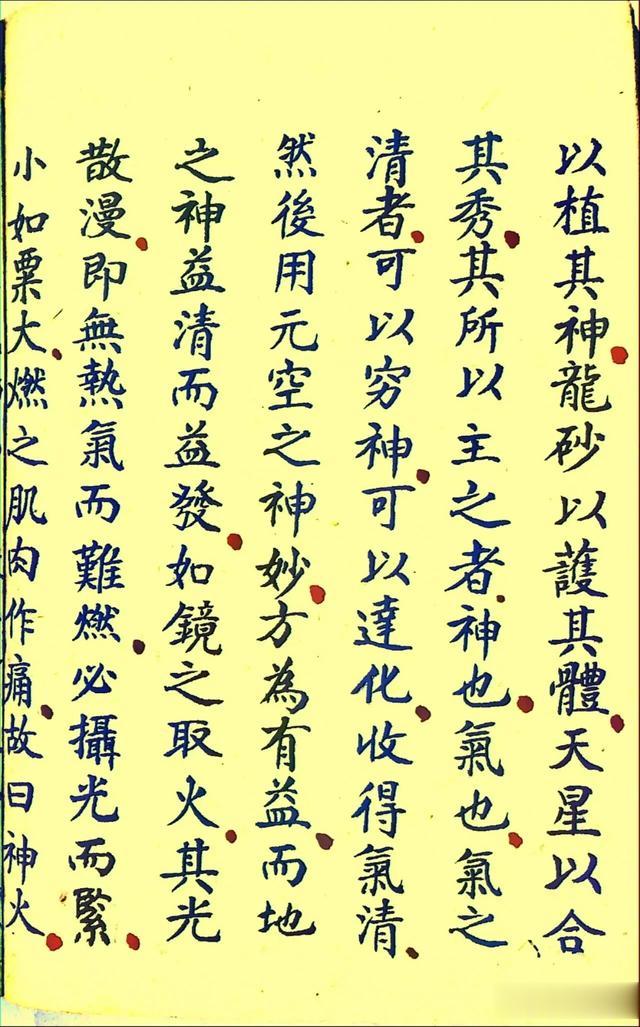 以植其神龍砂以護其體天星以合
其秀其所以主之者神也氣也氣之
清者可以穷神可以達化收得氣清
然後用元空之神妙方為有益而地
之神益清而益發如鏡之取火其光
散漫即無熱氣而難燃必攝光而緊
小如粟大燃之肌肉作痛故曰神火